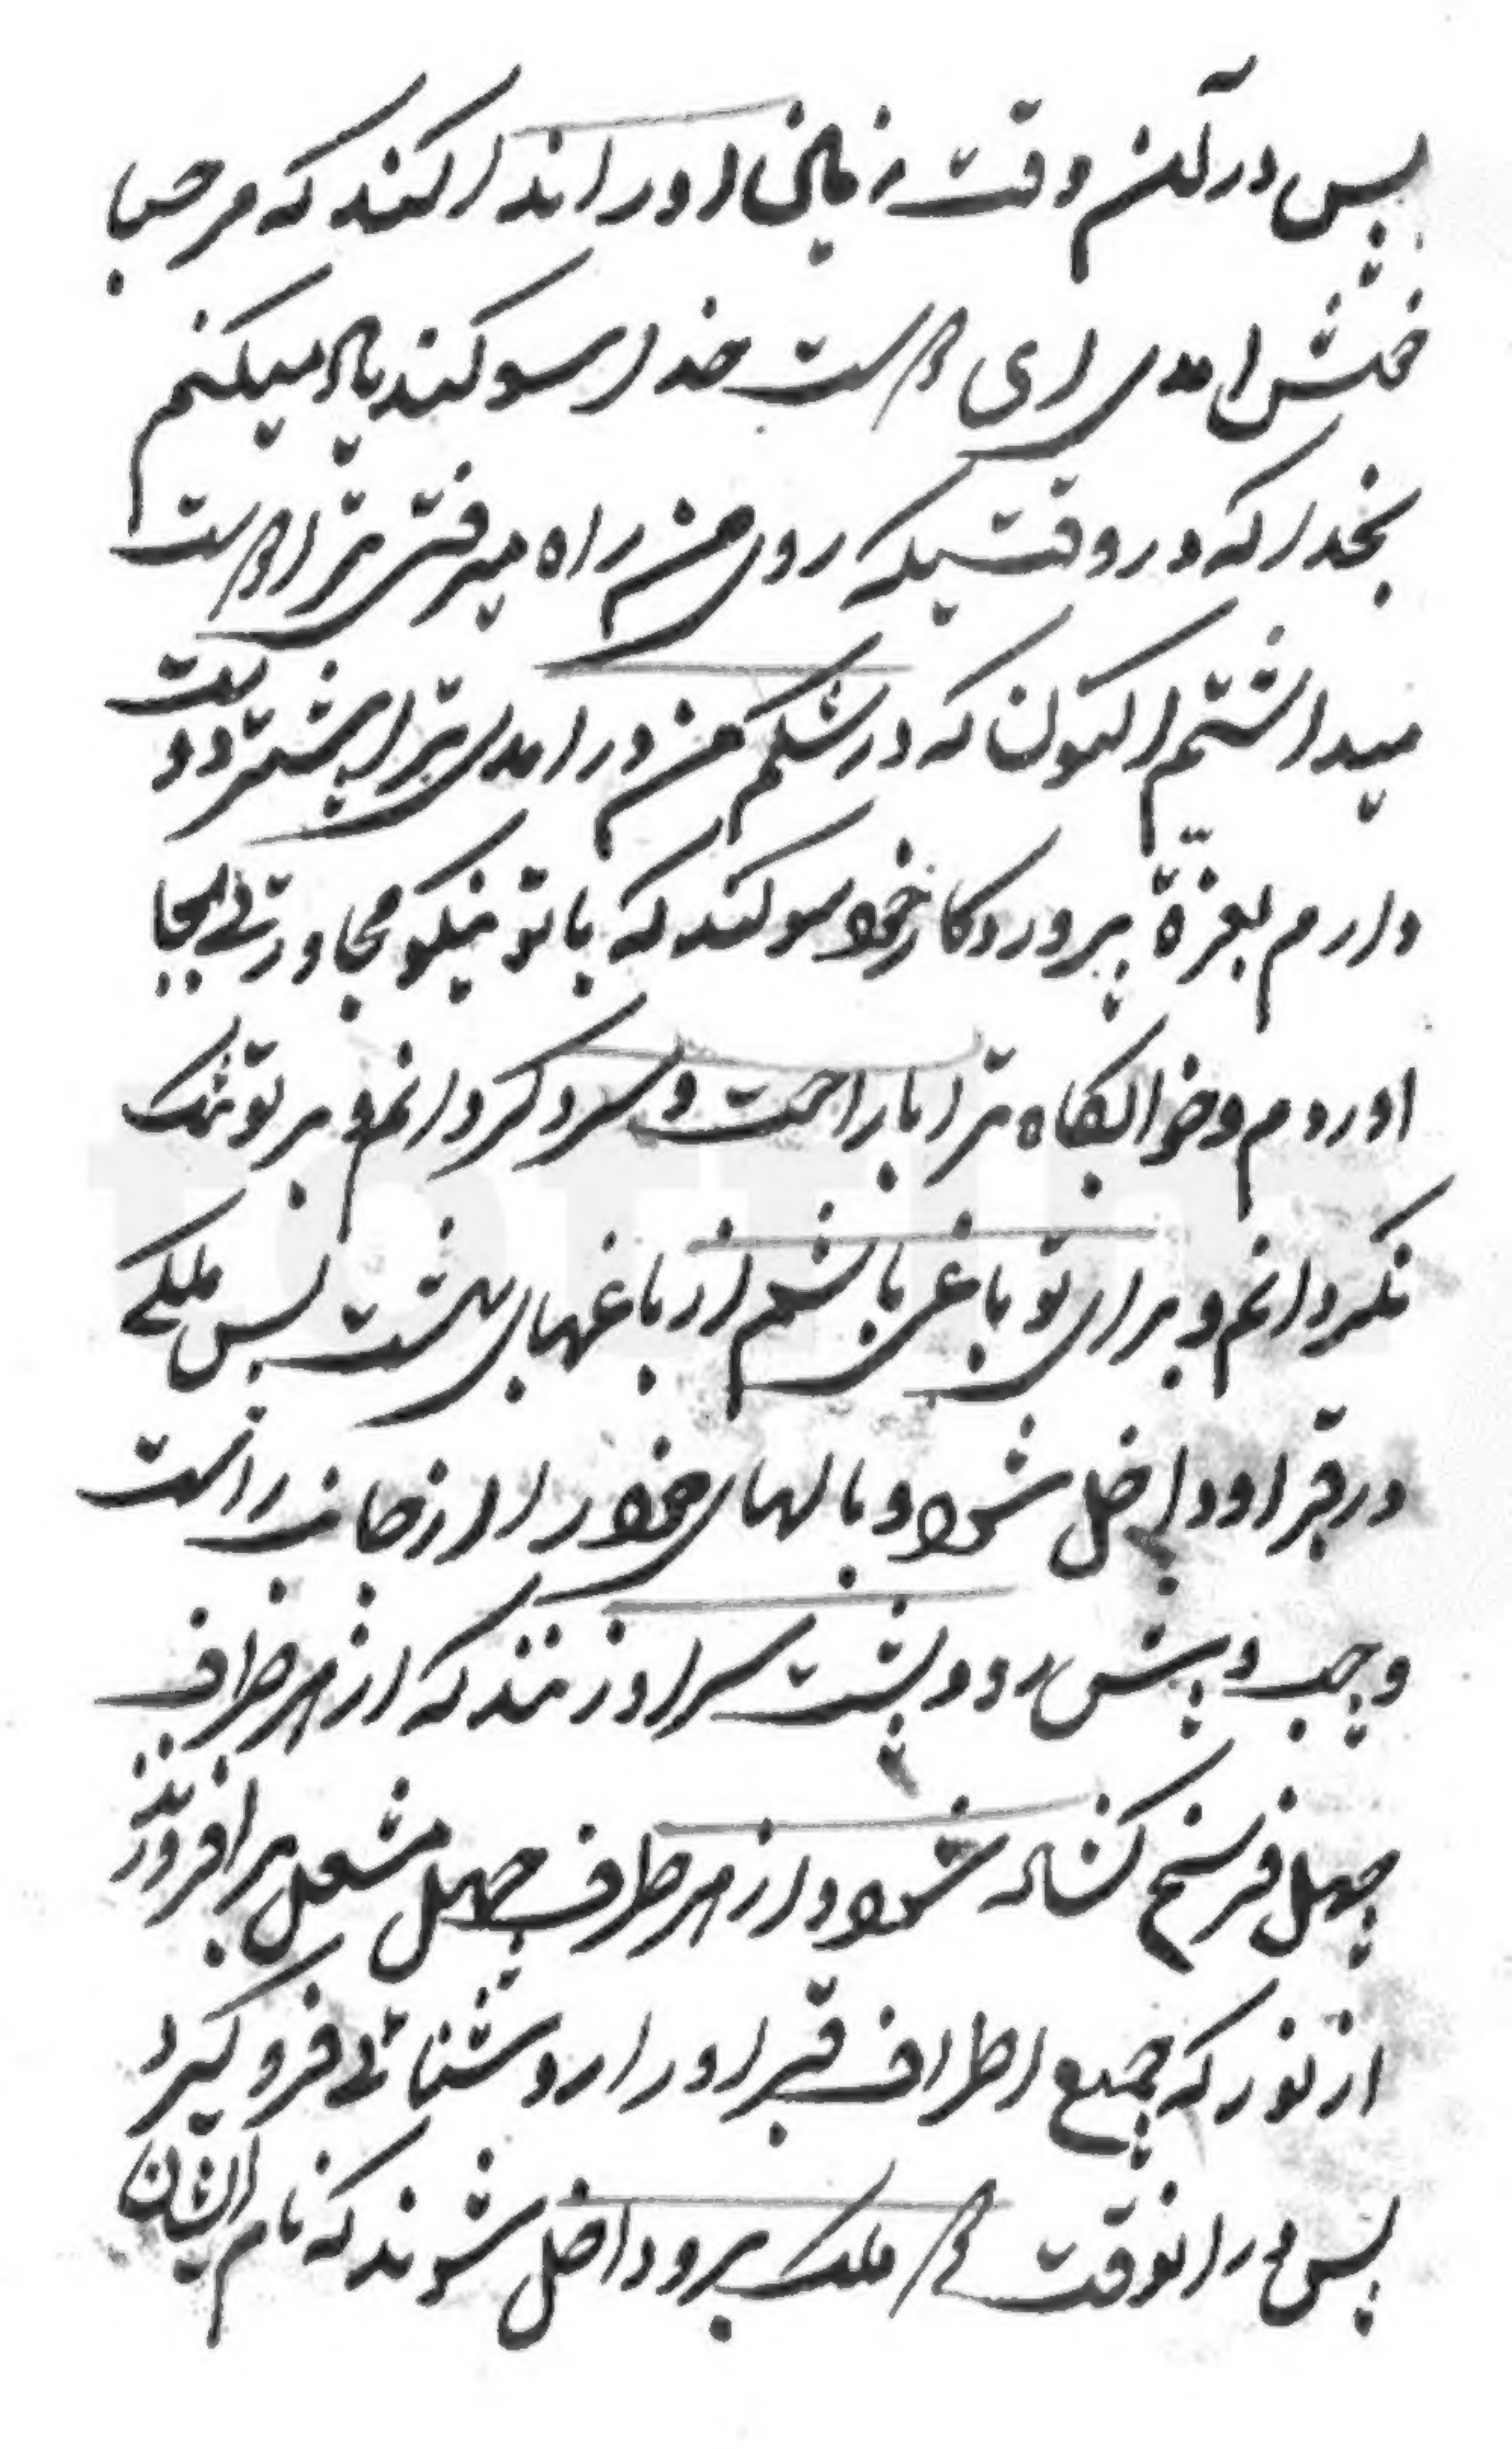 پس در آن وقت زمین او را ندا کند که مرحبا
خش امدی ای دوست خدا سوکند یاد میکنم
بخدا که در وقتیکه روی من راه میرفتی ترا دوست
میداشتم اکنون که در شکم من در امدی ترا بیشتر دوست
دارم بعزة پروردکار خود سوکند که با تو نیکو مجاورتی بجا
اوردم و خوابکاه ترا با راحت و سرد کردانم و بر تو تنک
نکردانم و برای تو باغی باشم از باغهای بهشت پس ملکی
در قبر او داخل شود و بالهای خود را از جانب راست
و چپ و پیش رو و پشت سر او زند که از هر طرف
چهل فرسخ کشاده شود و از هر طرف چهل مشعل بر افروزند
از نور که جمیع اطراف قبر او را روشنائی فرو کیرد
پس در انوقت دو ملک برو داخل شوند که نام ایشان